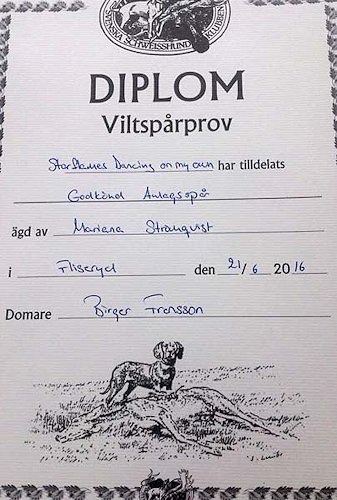 SVENSKA SCHWEISSHUNDKLUBBEN
DIPLOM
Viltspårprov
Starflames Dancing on my own har tilldelats
Godkänd Anlagsspår
ägd av Mariana Stranqvist
i Fliseryd den 21/6 2016
Domare Birger Fransson